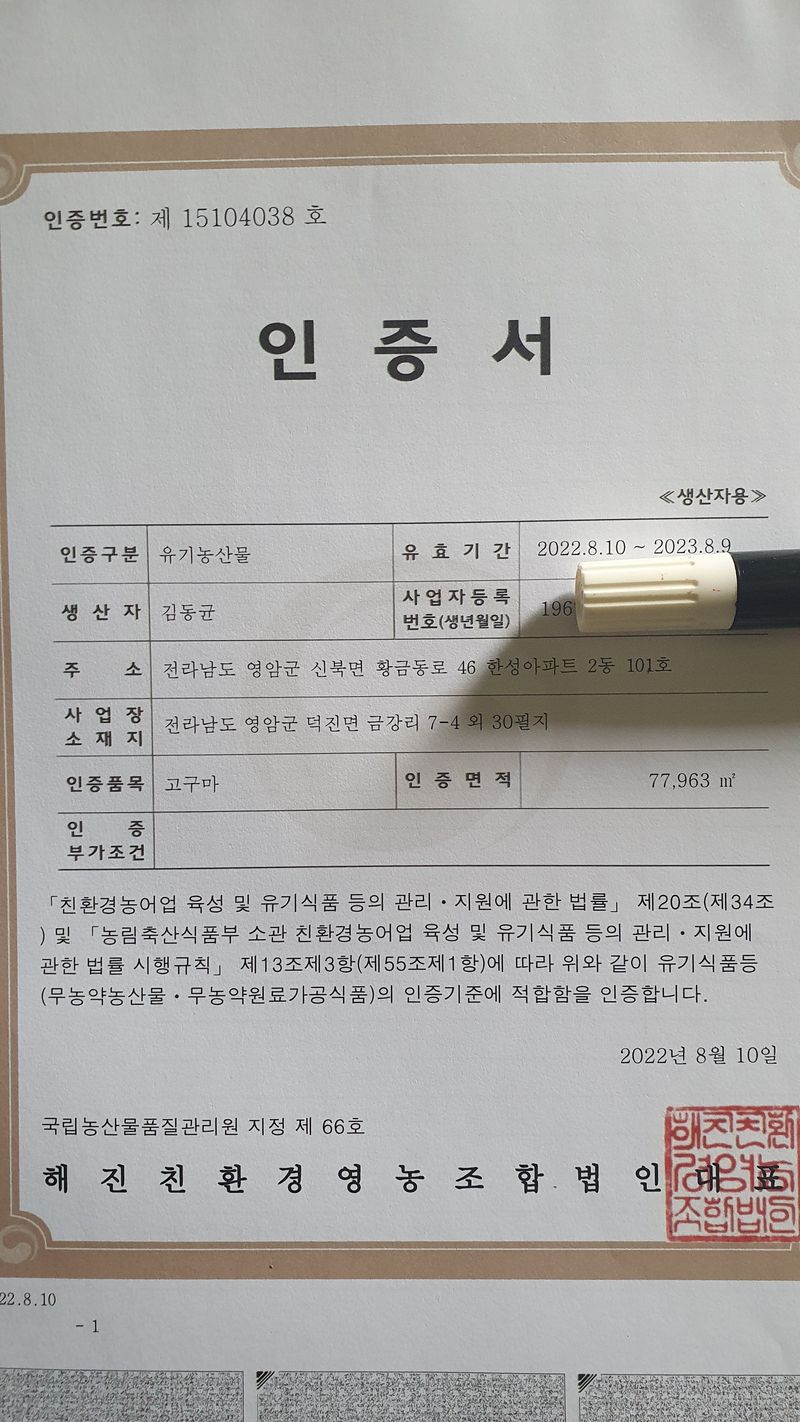 인증번호: 제 15104038 호
인 증 서
≪생산자용≫
인증구분 유기농산물 유 효 기 간 2022.8.10 ~ 2023.8.9
생 산 자 김동균 사업자등록 196
번호(생년월일)
주 소 전라남도 영암군 신북면 황금동로 46 한성아파트 2동 101호
사 업 장
소 재 지 전라남도 영암군 덕진면 금강리 7-4 외 30필지
인증품목 고구마 인 증 면 적 77,963 ㎡
인 증
부가조건
「친환경농어업 육성 및 유기식품 등의 관리・지원에 관한 법률」 제20조(제34조
) 및 「농림축산식품부 소관 친환경농어업 육성 및 유기식품 등의 관리・지원에
관한 법률 시행규칙」 제13조제3항(제55조제1항)에 따라 위와 같이 유기식품등
(무농약농산물・무농약원료가공식품)의 인증기준에 적합함을 인증합니다.
2022년 8월 10일
국립농산물품질관리원 지정 제 66호
해 진 친 환 경 영 농 조 합 법 인 대 표
22.8.10
- 1